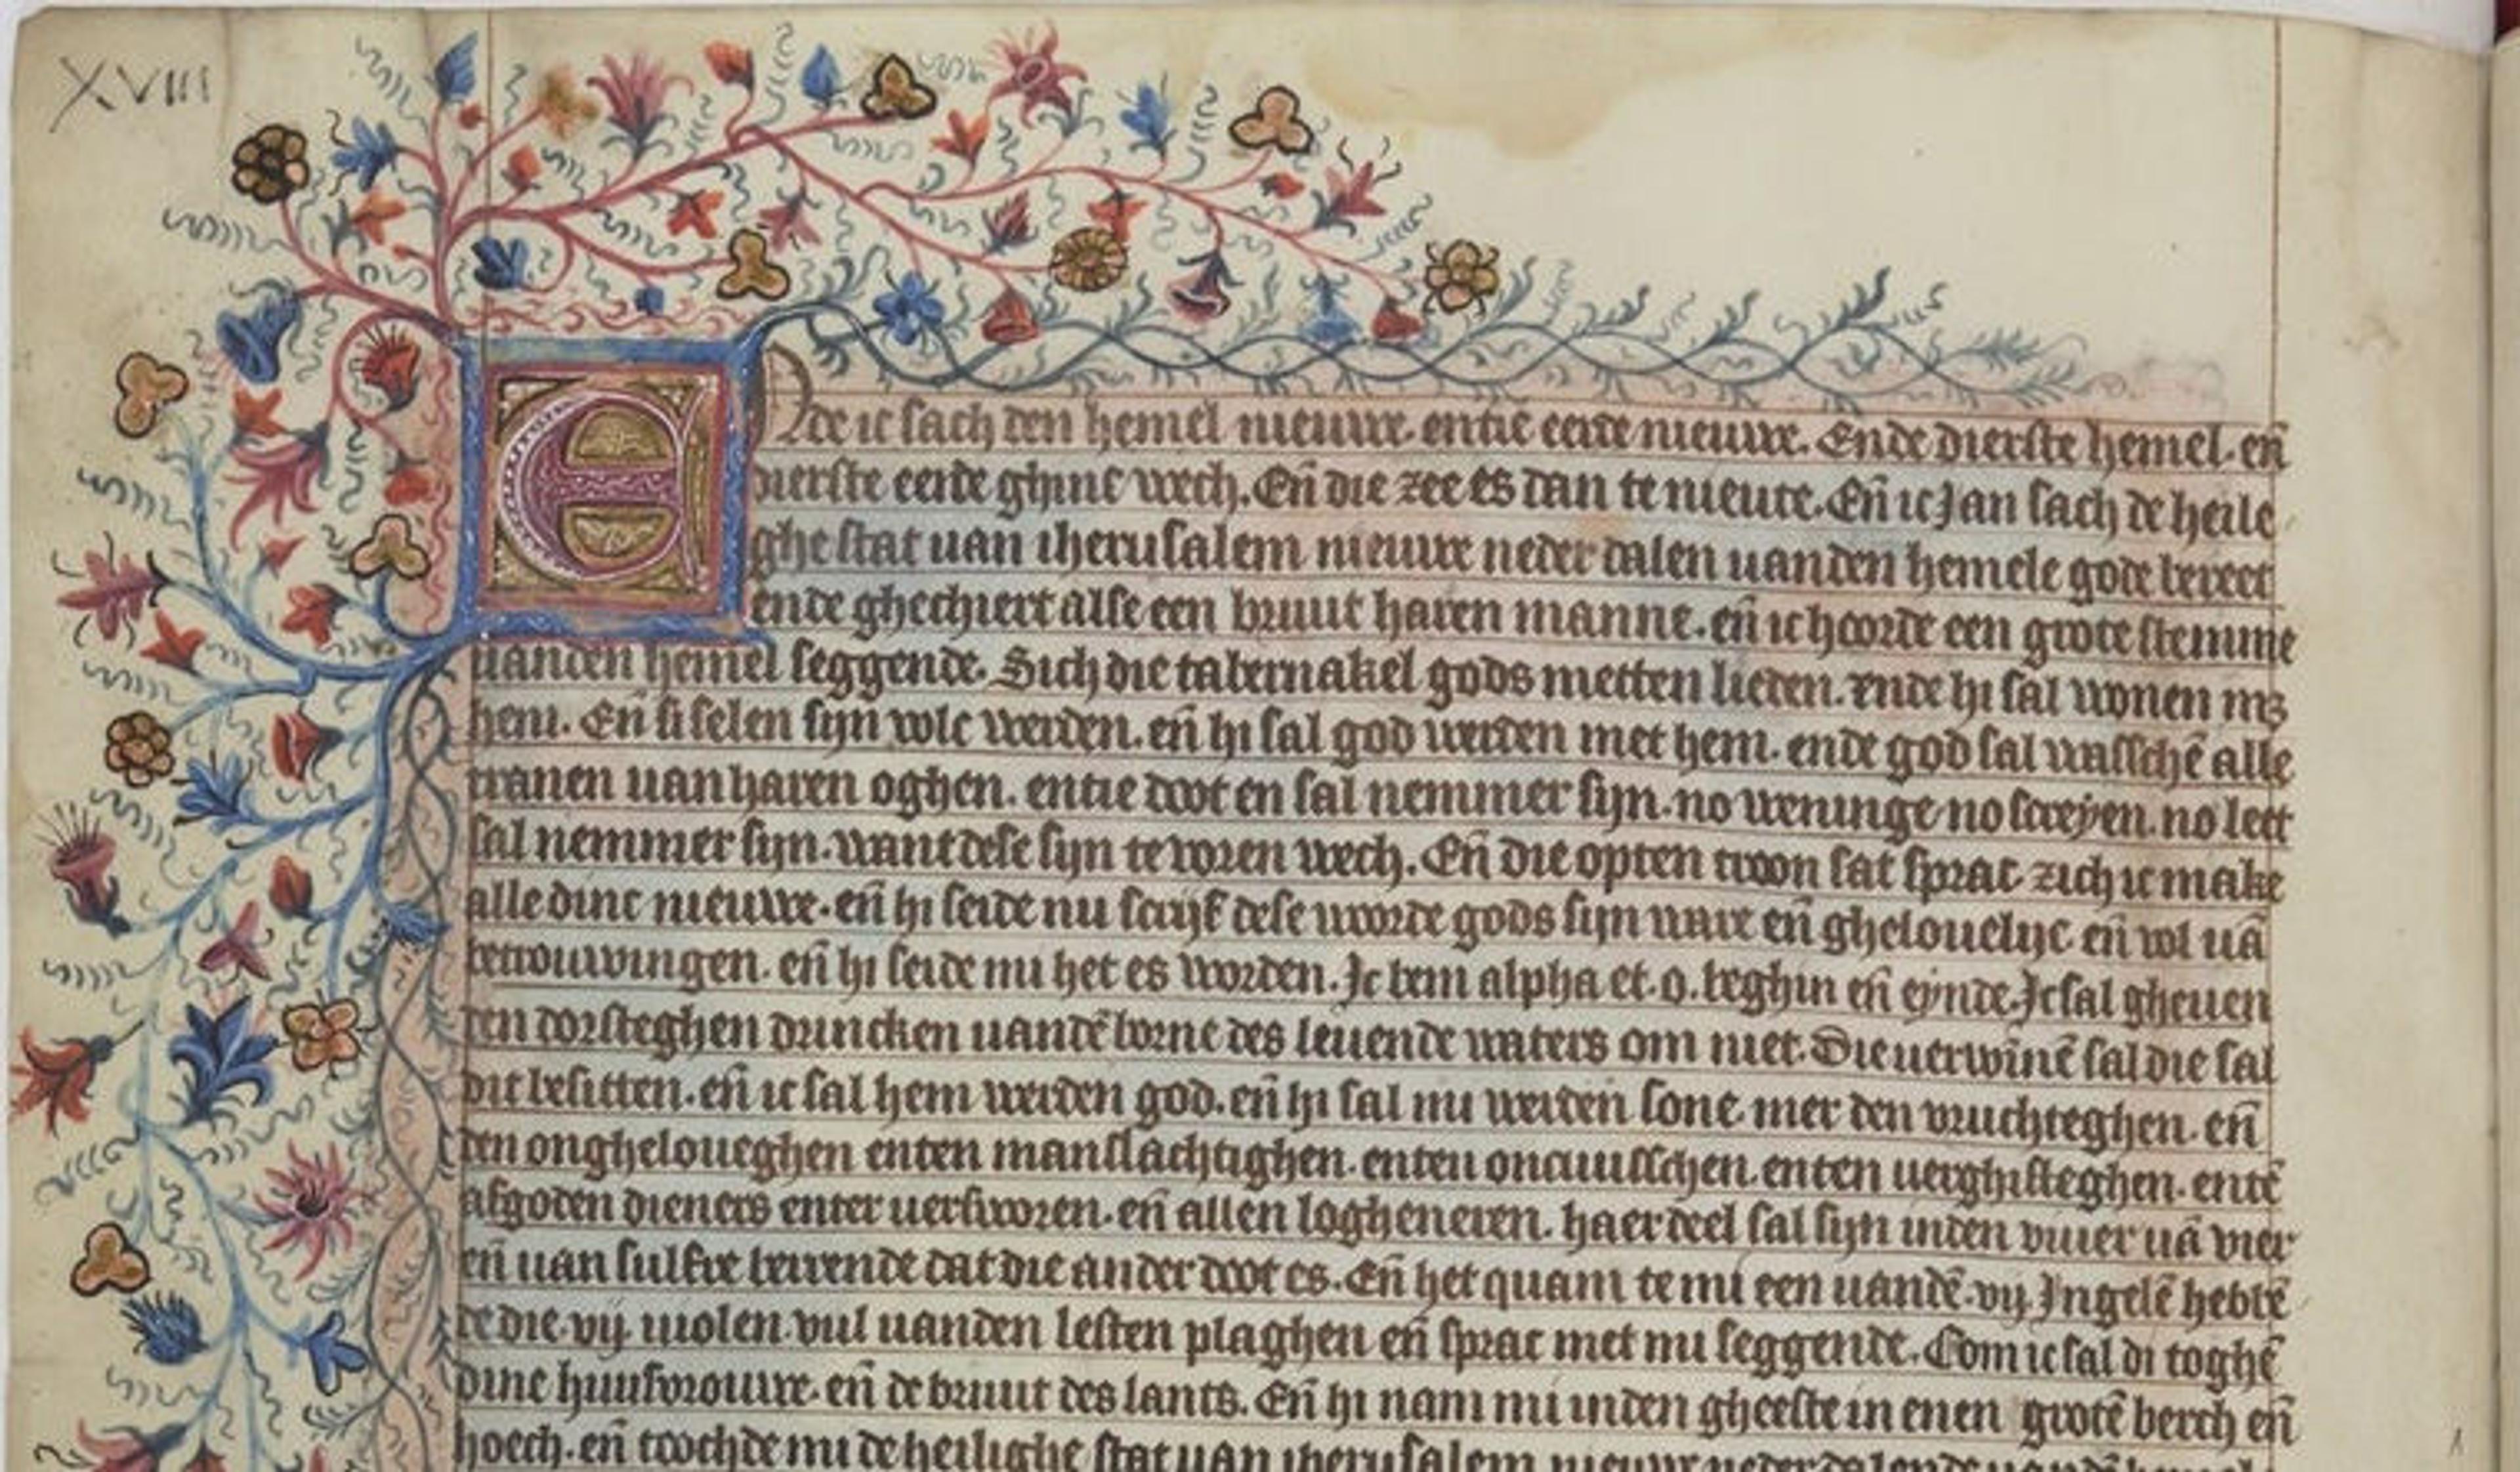 XVIII
Ende ic sach den hemel nieuwe. entie eerde nieuwe. Ende dierste hemel. en̄
dierste eerde ghinc wech. En̄ die zee es dan te nieute. En̄ ic Jan sach de heile
ghe stat uan iherusalem nieuwe neder dalen uanden hemele gode bereet
ende ghechiert alse een bruut haren manne. en̄ ic hoorde een grote stemme
uanden hemel seggende. Sich die tabernakel gods metten lieden. ende hi sal wonen mꝫ
hem. En̄ si selen sijn volc werden. en̄ hi sal god werden met hem. ende god sal wasschē alle
tranen uan haren oghen. entie doot en sal nemmer sijn. no weninge no screyen. no leet
sal nemmer sijn. want dese sijn te voren wech. En̄ die opten troon sat sprac zich ic make
alle dinc nieuwe. en̄ hi seide nu scrijf dese woorde gods sijn ware en̄ ghelouelijc en̄ vol uā
betrouwingen. en̄ hi seide mi het es worden. Jc bem alpha et. o. beghin en̄ eynde. Jc sal gheuen
den dorsteghen drincken uandē borne des leuende waters om niet. Die uerwinnē sal die sal
dit besitten. en̄ ic sal hem werden god. en̄ hi sal mi werden sone. mer den vruchteghen. en̄
den ongheloueghen enten manslachtighen. enten oncuusschen. enten uerghifteghen. entē
afgoden dieners enter uersworen. en̄ allen logheneren. haer deel sal sijn inden viuier uā vier
en̄ uan sulfre berrende dat die ander doot es. En̄ het quam te mi een uandē. vij. Jngelē hebbē
de die. vij. uiolen. vul uanden lesten plaghen en̄ sprac met mi seggende. Com ic sal di toghē
dine huusvrouwe. en̄ de bruut des lants. En̄ hi nam mi inden gheeste in enen grotē berch en̄
hoech. en̄ toochde mi de heilighe stat uan iherusalem nieuwe neder dalende